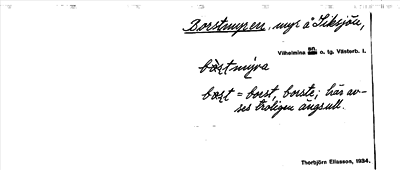 Borstmyren, myr å Siksjön,
Vilhelmina sn. o. tg. Västerb. l.
bòṣtmýra
boṣt = borst, borste; här av-
ses troligen ängsull.
Thorbjörn Eliasson, 1934.